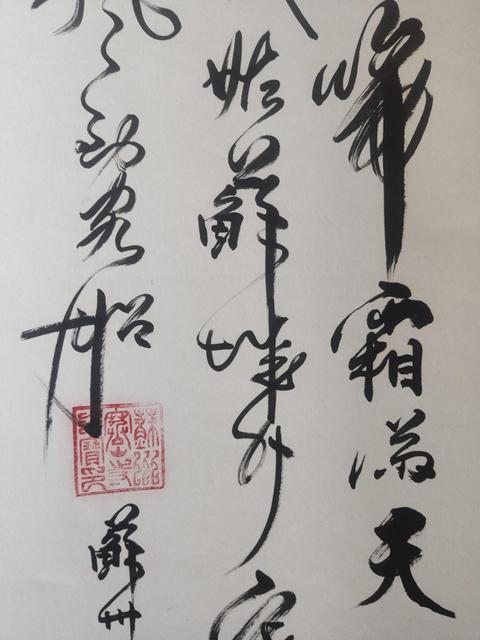 啼霜滿天
姑蘇城外寒
到客船
蘇州